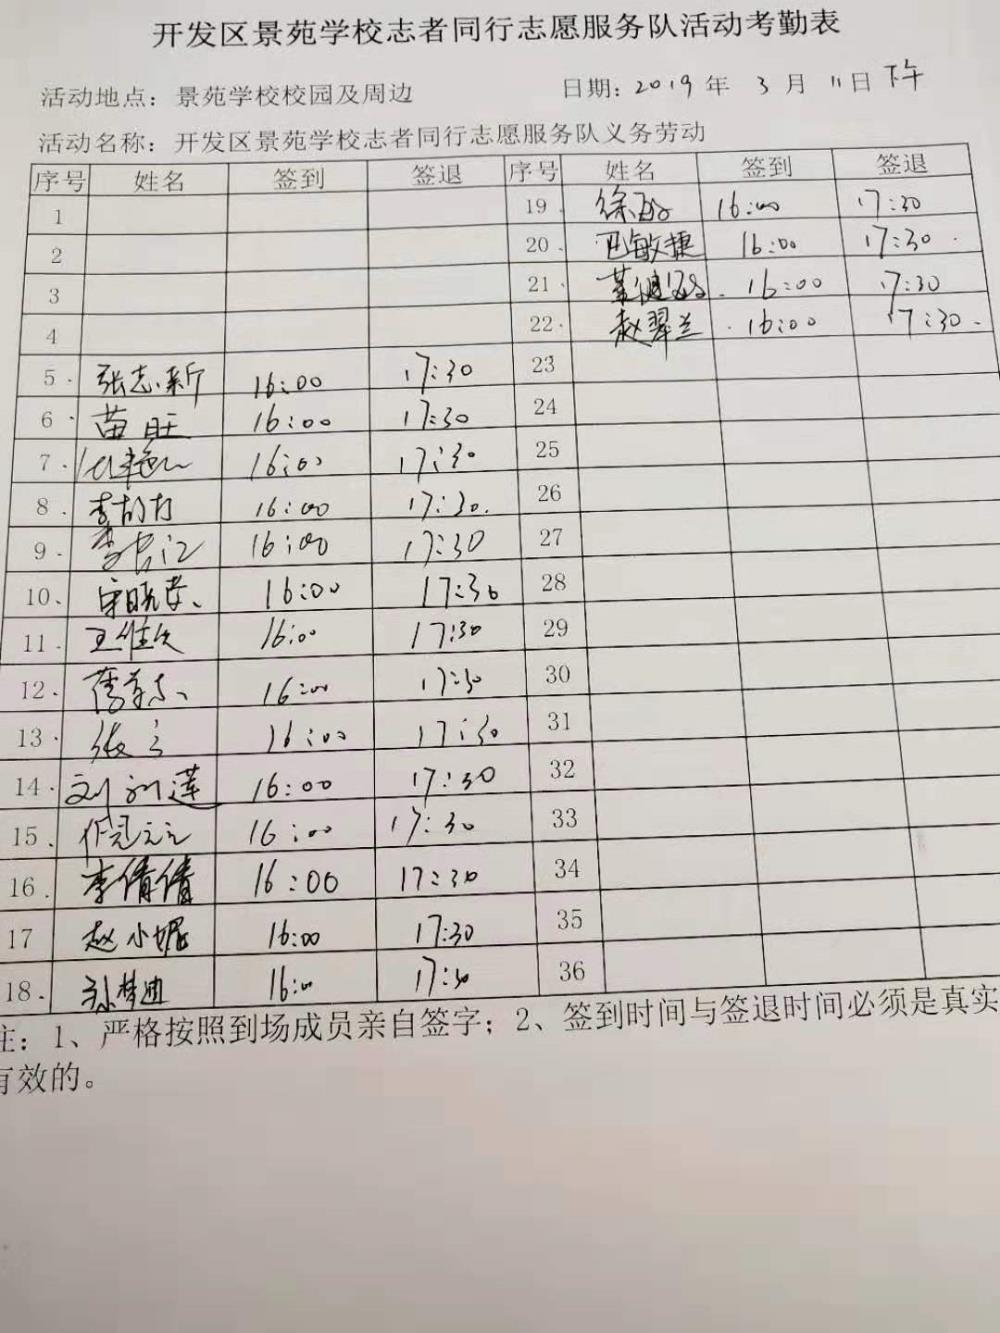 开发区景苑学校志者同行志愿服务队活动考勤表
活动地点：景苑学校校园及周边 日期：2019年 3月 11日 下午
活动名称：开发区景苑学校志者同行志愿服务队义务劳动
序号 姓名 签到 签退 序号 姓名 签到 签退
1 19 16:00 17:30
2 20 敏捷 16:00 17:30
3 21 16:00 17:30
4 22 赵翠兰 16:00 17:30
5 张志新 16:00 17:30 23
6 苗旺 16:00 17:30 24
7 16:00 17:30 25
8 16:00 17:30 26
9 16:00 17:30 27
10 宋晓 16:00 17:30 28
11 王维 16:00 17:30 29
12 16:00 17:30 30
13 16:00 17:30 31
14 莲 16:00 17:30 32
15 16:00 17:30 33
16 李倩倩 16:00 17:30 34
17 赵小妮 16:00 17:30 35
18 孙梦迪 16:00 17:30 36
注：1、严格按照到场成员亲自签字；2、签到时间与签退时间必须是真实
有效的。